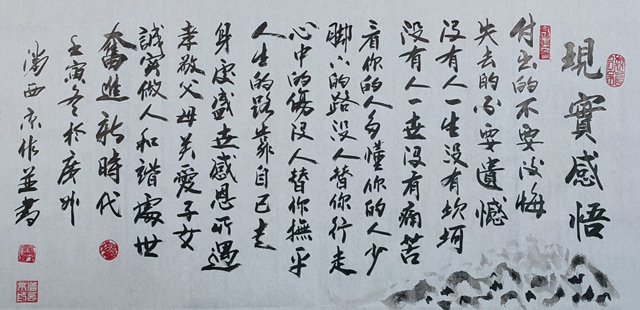 現實感悟
付出的不要後悔
失去的不要遺憾
没有人一生没有坎坷
没有人一世没有痛苦
看你的人多懂你的人少
脚下的路没人替你行走
心中的傷没人替你撫平
人生的路靠自己走
身處盛世感恩所遇
孝敬父母关愛子女
誠實做人和諧處世
奮進新時代
壬寅冬於广州
西京作並書